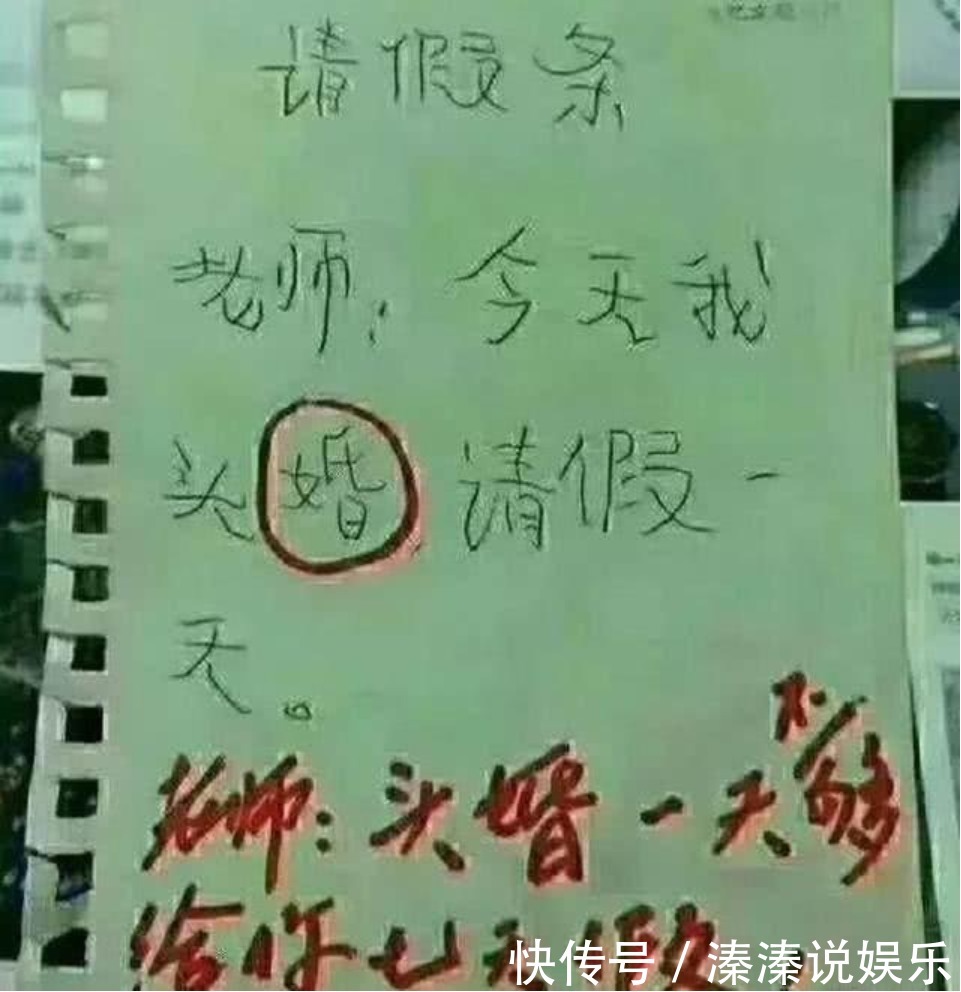 请假条
老师：今天我
头婚请假一
天。
老师：头婚一天不够
给你七天假
快传号/溱溱说娱乐